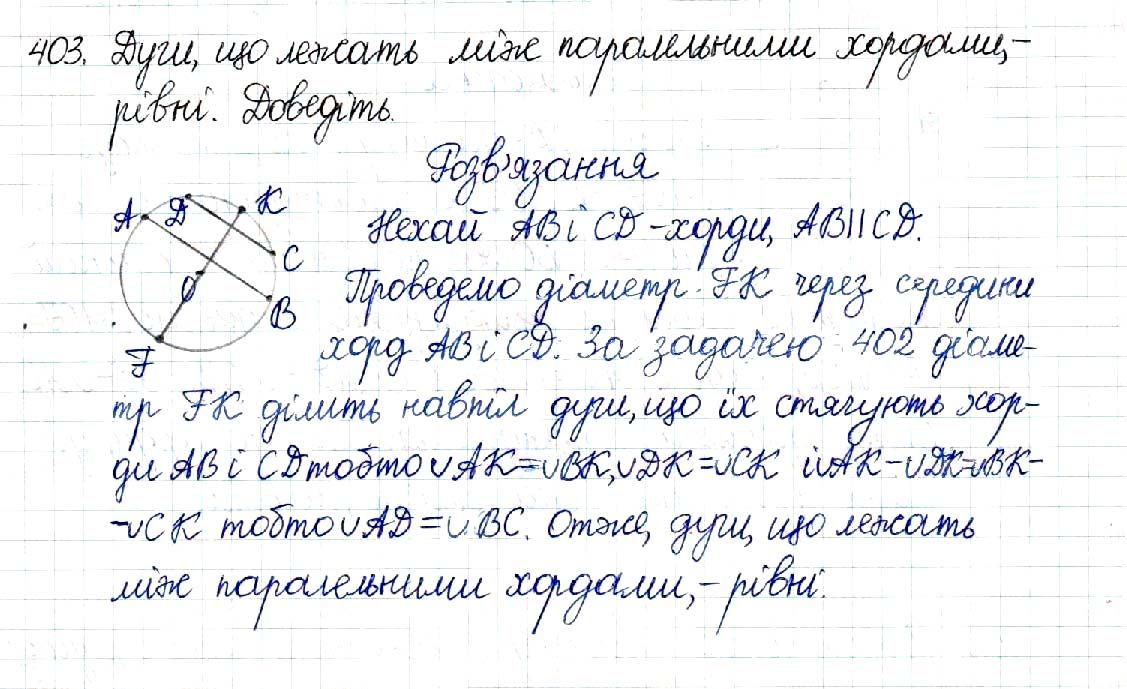 403. Дуги, що лежать між паралельними хордами,–
рівні. Доведіть.
Розв'язання
A D K
Нехай AB і CD – хорди, AB||CD.
C
O
Проведемо діаметр FK через середини
B
хорд AB і CD. За задачею 402 діаме-
F
тр FK ділить навпіл дуги, що їх стягують хор-
ди AB і CD тобто ∪AK=∪BK, ∪DK=∪CK і ∪AK–∪DK=∪BK–
–∪CK тобто ∪AD=∪BC. Отже, дуги, що лежать
між паралельними хордами,– рівні.